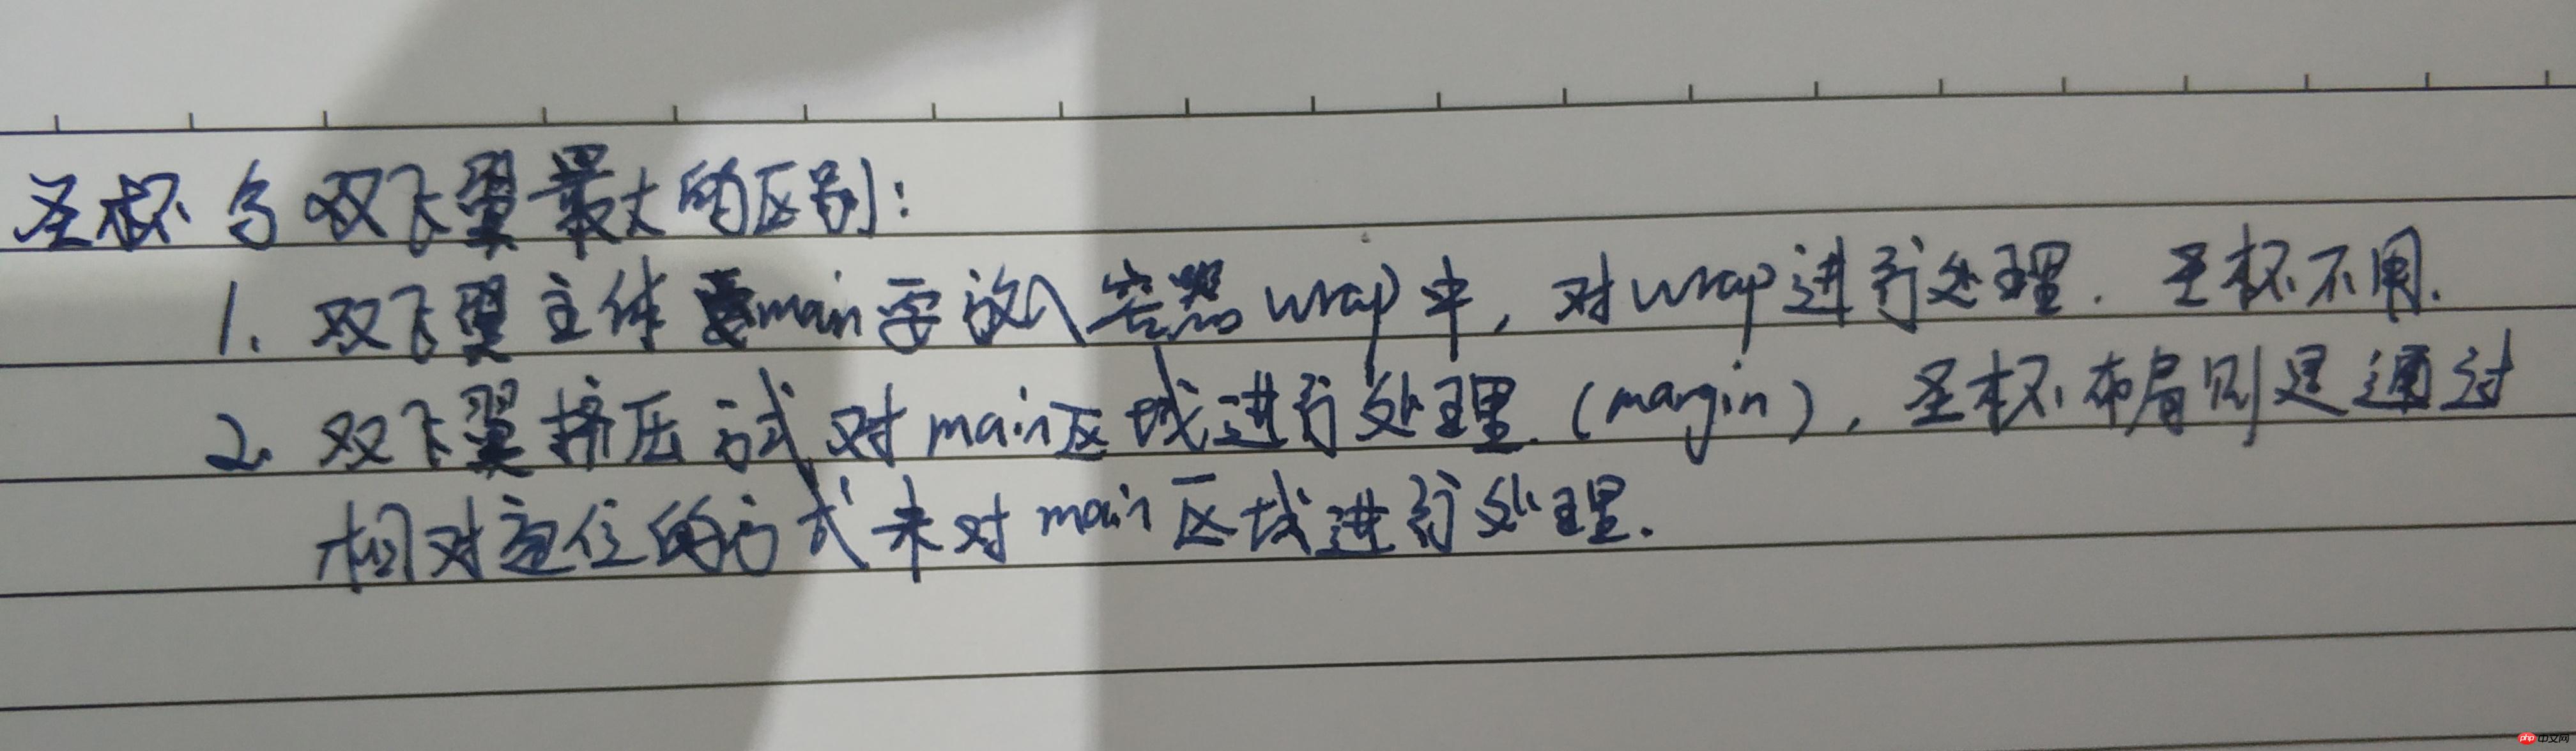 圣杯与双飞翼最大的区别:
1. 双飞翼主体main要放入容器wrap中, 对wrap进行处理. 圣杯不用.
2. 双飞翼挤压方式对main区域进行处理.(margin), 圣杯布局则是通过
相对定位的方式来对main区域进行处理.
php 中文网